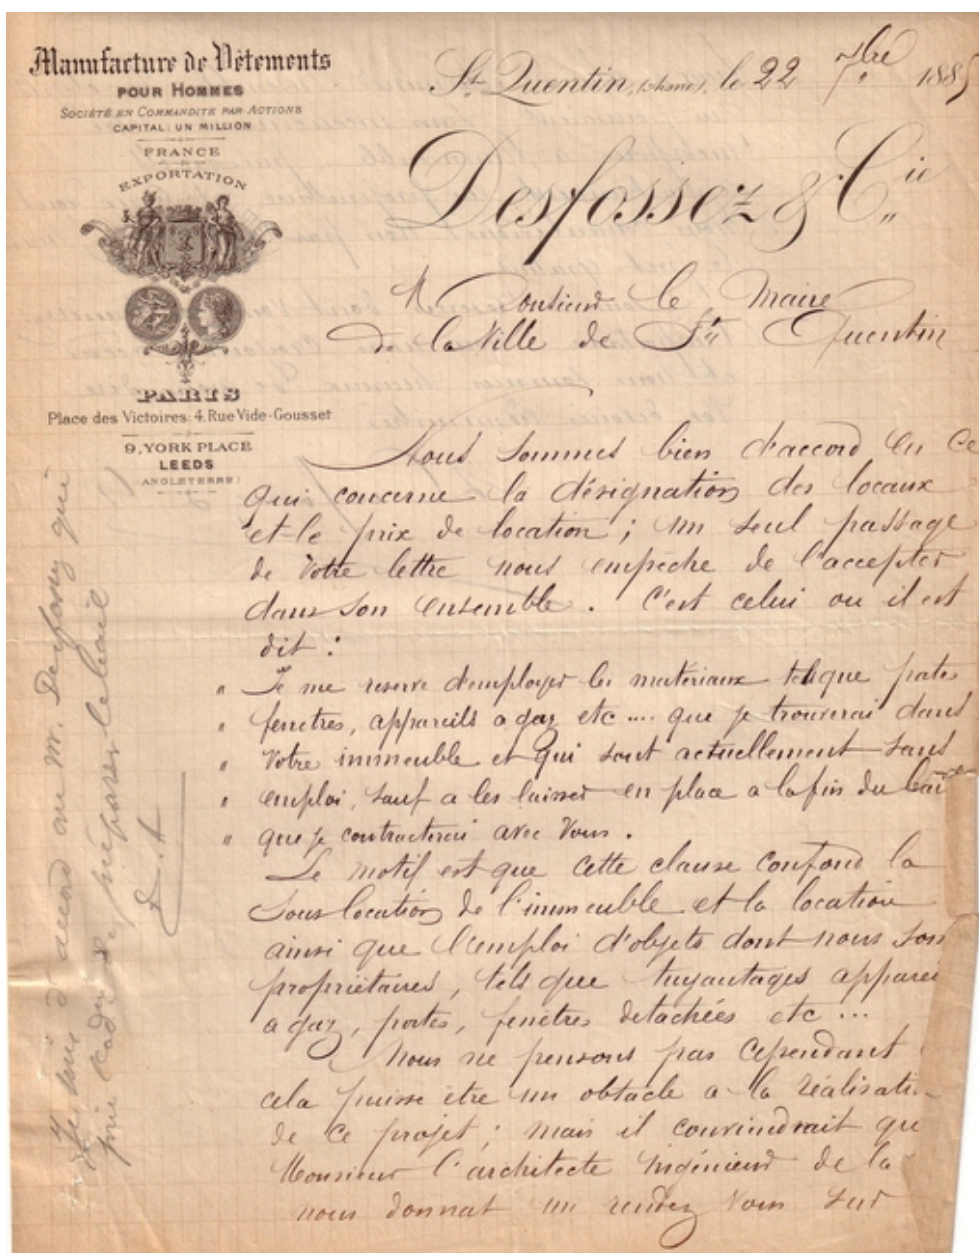 Manufacture de Vêtements
POUR HOMMES
SOCIÉTÉ EN COMMANDITE PAR ACTIONS
CAPITAL: UN MILLION
FRANCE
EXPORTATION
PARIS
Place des Victoires: 4. Rue Vide-Gousset
9. YORK PLACE
LEEDS
(ANGLETERRE)
St. Quentin, (Aisne), le 22 7bre 1885
Desfossez & Cie
Monsieur le Maire
de la Ville de St Quentin
Nous sommes bien d'accord en ce
qui concerne la désignation des locaux
et le prix de location ; un seul passage
de votre lettre nous empêche de l'accepter
dans son ensemble. C'est celui ou il est
dit :
" Je me reserve d'employer les matériaux tels que
" fenetres, appareils a gaz etc .... que je trouverai dans
" Votre immeuble et qui sont actuellement sans
" emploi, sauf a les laisser en place a la fin du bail
" que je contracterai avec Vous.
Le motif est que cette clause confond la
Sous location de l'immeuble et la location
ainsi que l'emploi d'objets dont nous som
propriétaires, tels que tuyautages apparei
a gaz, portes, fenetres detachées etc ...
Nous ne pensons pas cependant
cela puisse etre un obstacle a la réalisati
de ce projet ; mais il conviendrait qu
Monsieur l'architecte ingénieur de la
nous donnat un rendez vous sur
d'accord M. Desfossez qui
préparer le bail